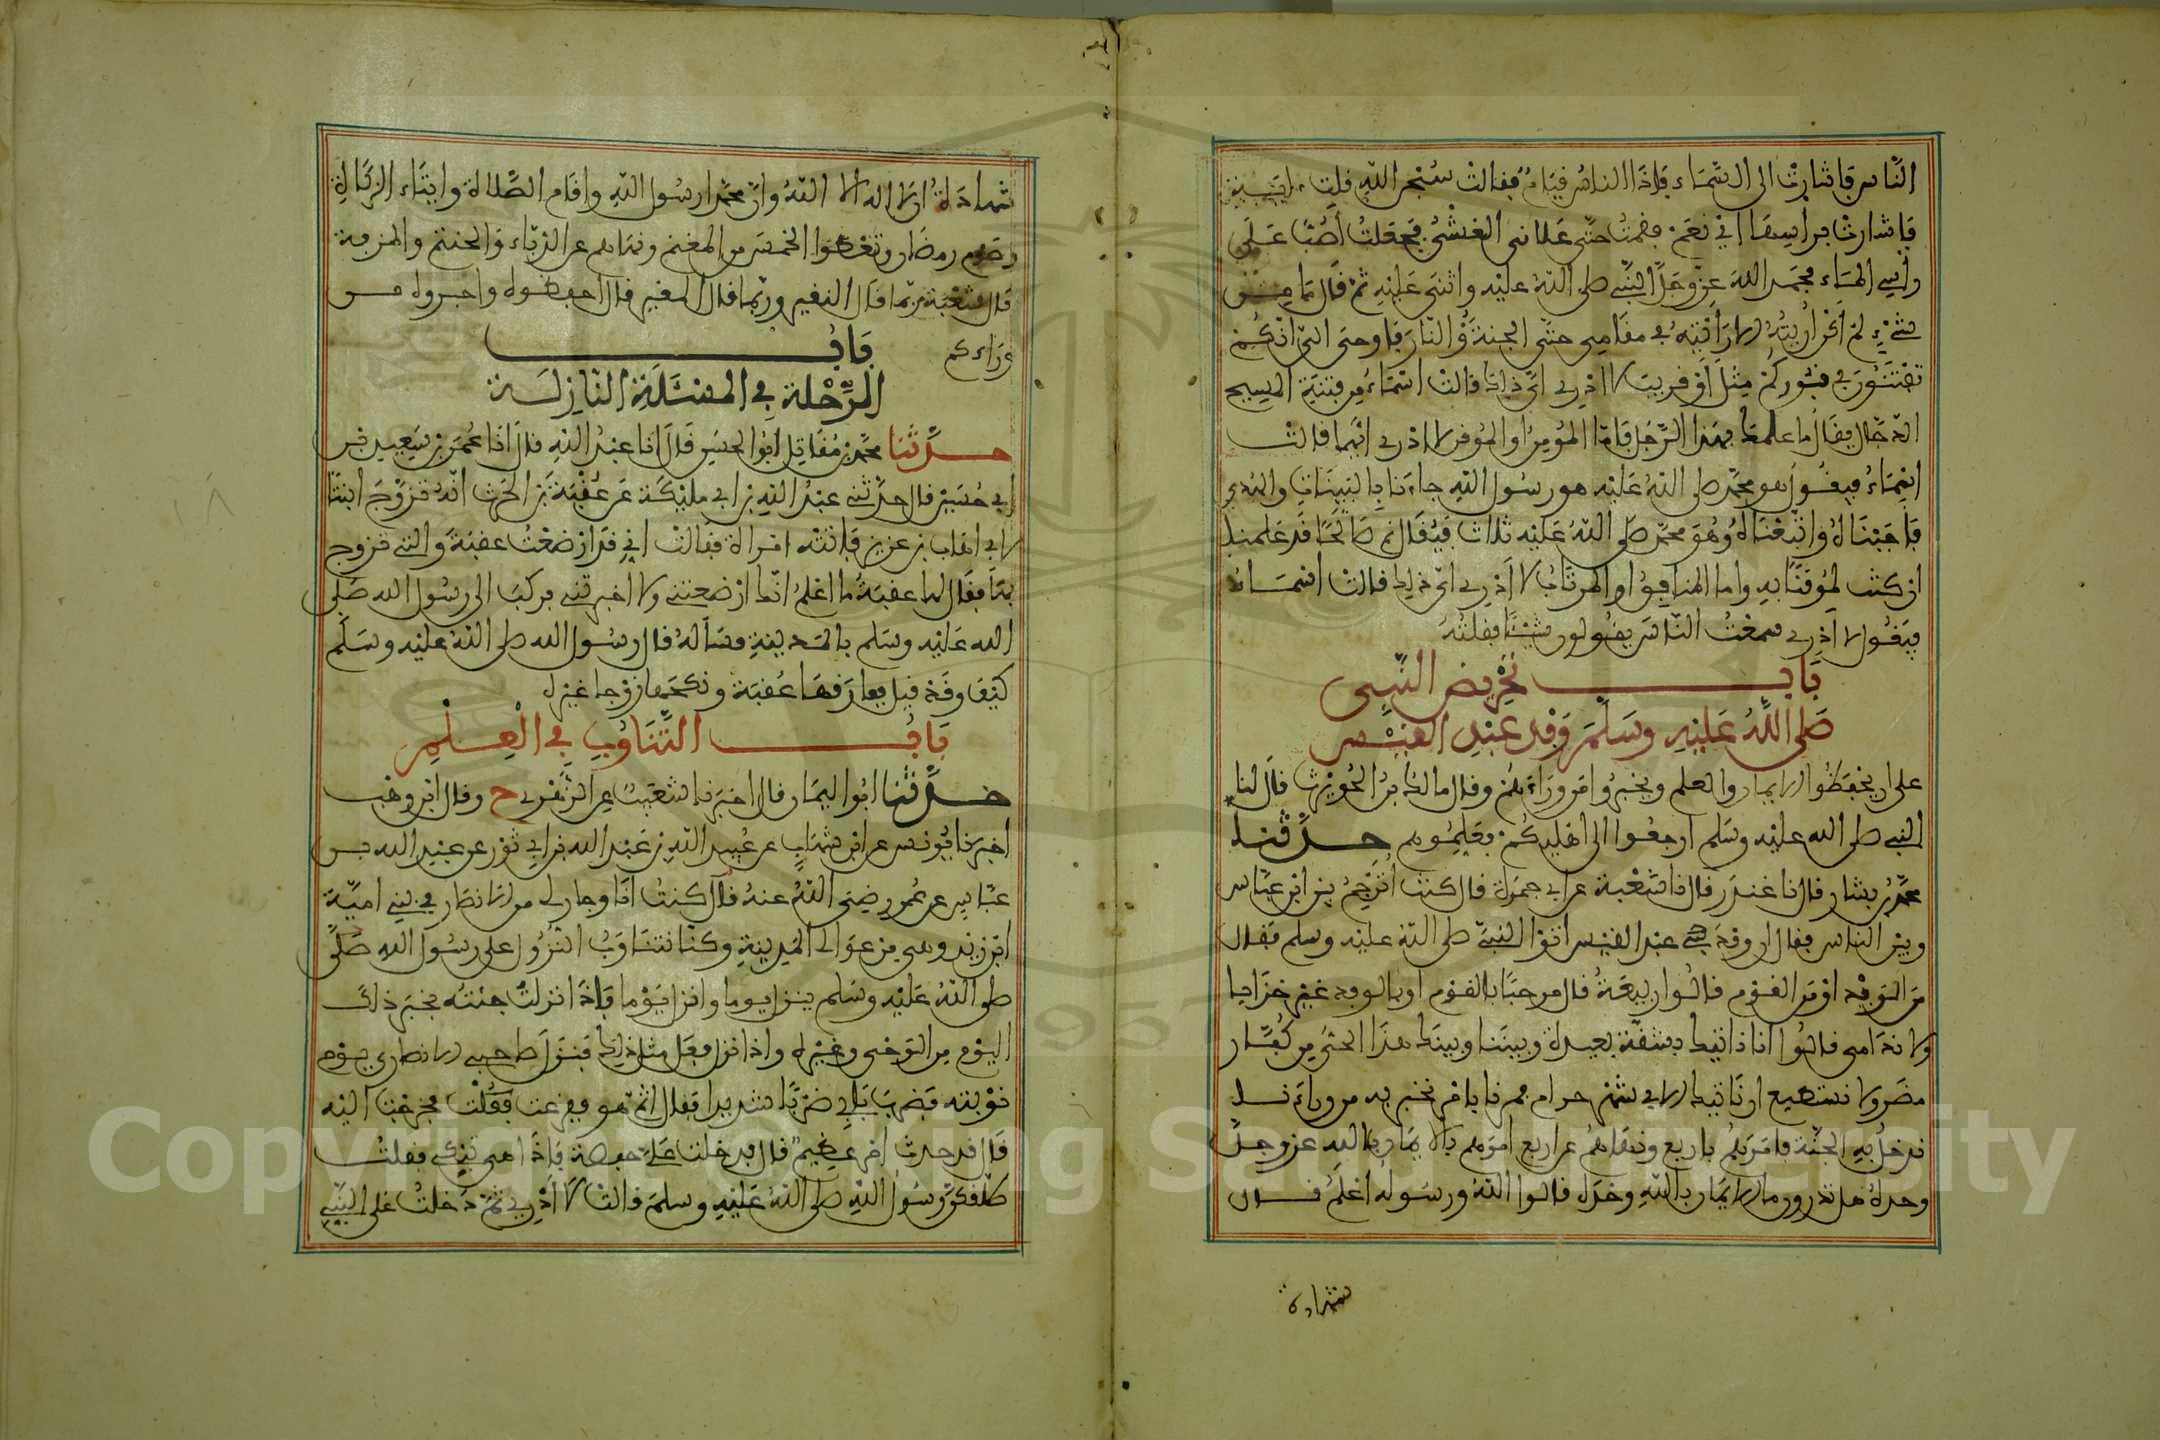 الناس فاشارت الى السماء فاذا الناس قيام فقالت سبحن الله قلت ءاية
فاشارت براسها اي نعم فقمت حتى علاني الغشي فجعلت اصب على
راسي الماء فحمد الله عز وجل النبي صلى الله عليه واثنى عليه ثم قال ما من
شيء لم اكن اريته الا رايته في مقامي حتى الجنة والنار فاوحي الي انكم
تفتنون في قبوركم مثل او قريب لا ادري اي ذلك قالت اسماء من فتنة المسيح
الدجال يقال ما علمك بهذا الرجل فاما المومن او الموقن لا ادري ايهما قالت
اسماء فيقول هو محمد صلى الله عليه هو رسول الله جاءنا بالبينات والهدى
فاجبناه واتبعناه وهو محمد صلى الله عليه ثلاث فيقال نم صالحا قد علمنا
ان كنت لموقنا به واما المنافق او المرتاب لا ادري اي ذلك قالت اسماء
فيقول لا ادري سمعت الناس يقولون شيئا فقلته
باب تحريض النبي
صلى الله عليه وسلم وفد عبد القيس
على ان يحفظوا الايمان والعلم ويخبروا من وراءهم وقال مالك بن الحويرث قال لنا
النبي صلى الله عليه وسلم ارجعوا الى اهليكم فعلموهم حدثنا
محمد بن بشار قال نا غندر قال نا شعبة عن ابي جمرة قال كنت اترجم بين ابن عباس
وبين الناس فقال ان وفد عبد القيس اتوا النبي صلى الله عليه وسلم فقال
من الوفد او من القوم قالوا ربيعة قال مرحبا بالقوم او بالوفد غير خزايا
ولا ندامى قالوا انا ناتيك من شقة بعيدة وبيننا وبينك هذا الحي من كفار
مضر ولا نستطيع ان ناتيك الا في شهر حرام فمرنا بامر نخبر به من وراءنا
ندخل به الجنة فامرهم باربع ونهاهم عن اربع امرهم بالايمان بالله عز وجل
وحده هل تدرون ما الايمان بالله وحده قالوا الله ورسوله اعلم قال
شهادة
شهادة ان لا اله الا الله وان محمدا رسول الله واقام الصلاة وايتاء الزكاة
وصوم رمضان وتعطوا الخمس من المغنم ونهاهم عن الدباء والحنتم والمزفت
قال شعبة ربما قال النقير وربما قال المقير قال احفظوه واخبروه من
وراءكم
باب
الرحلة في المسئلة النازلة
حدثنا محمد بن مقاتل ابو الحسن قال انا عبد الله قال انا عمر بن سعيد بن
ابي حسين قال حدثني عبد الله بن ابي مليكة عن عقبة بن الحرث انه تزوج ابنتا
لابي اهاب بن عزيز فاتته امراة فقالت اني قد ارضعت عقبة والتي تزوج
بها فقال لها عقبة ما اعلم انك ارضعتني ولا اخبرتني فركب الى رسول الله صلى
الله عليه وسلم بالمدينة فساله قال رسول الله صلى الله عليه وسلم
كيف وقد قيل ففارقها عقبة ونكحها زوجا غيره
باب التناوب في العلم
حدثنا ابو اليمان قال اخبرنا شعيب عن الزهري ح وقال ابن وهب
اخبرنا يونس عن ابن شهاب عن عبيد الله بن عبد الله بن ابي ثور عن عبد الله بن
عباس عن عمر رضي الله عنه قال كنت انا وجار لي من الانصار في بني امية
ابن زيد وهي من عوالي المدينة وكنا نتناوب النزول على رسول الله صلى
صلى الله عليه وسلم ينزل يوما وانزل يوما فاذا نزلت جئته بخبر ذلك
اليوم من الوحي وغيره واذا نزل فعل مثل ذلك فنزل صاحبي الانصاري يوم
نوبته فضرب بابي ضربا شديدا فقال اثم هو ففزعت فخرجت اليه
قال قد حدث امر عظيم قال فدخلت على حفصة فاذا هي تبكي فقلت
طلقكن رسول الله صلى الله عليه وسلم قالت لا ادري ثم دخلت على النبي
Copyright © King Saud University
1957